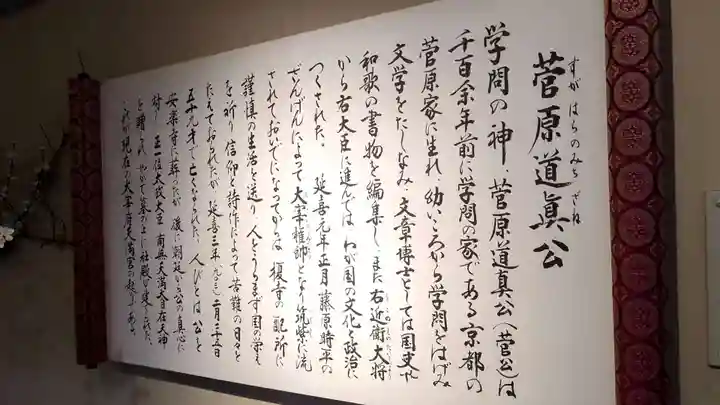 菅原道真公
すが はらのみち ざね
学問の神、菅原道真公(菅公)は
千百余年前に学問の家である京都の
菅原家に生れ、幼いころから学問をはげみ
文学をたしなみ、文章博士としては国史や
和歌の書物を編集し、また右近衛大将
から右大臣に進んでは、わが国の文化と政治に
つくされた。 延喜元年正月藤原時平の
ざんげんによって大宰権帥となり筑紫に流
されておいでになってからは、榎寺の配所に
謹慎の生活を送り、人をうらまず国の栄え
を祈り、信仰と詩作によって苦難の日々を
たえておられたが、延喜三年(九〇三)二月二十五日
五十九才で亡くなられた。人びとは公を
安楽寺に葬ったが、後に朝廷から公の真心に
対し、正一位太政大臣、南無天満大自在天神
を贈られ、やがて墓の上に社殿が建てられた。
これが現在の太宰府天満宮の起りである